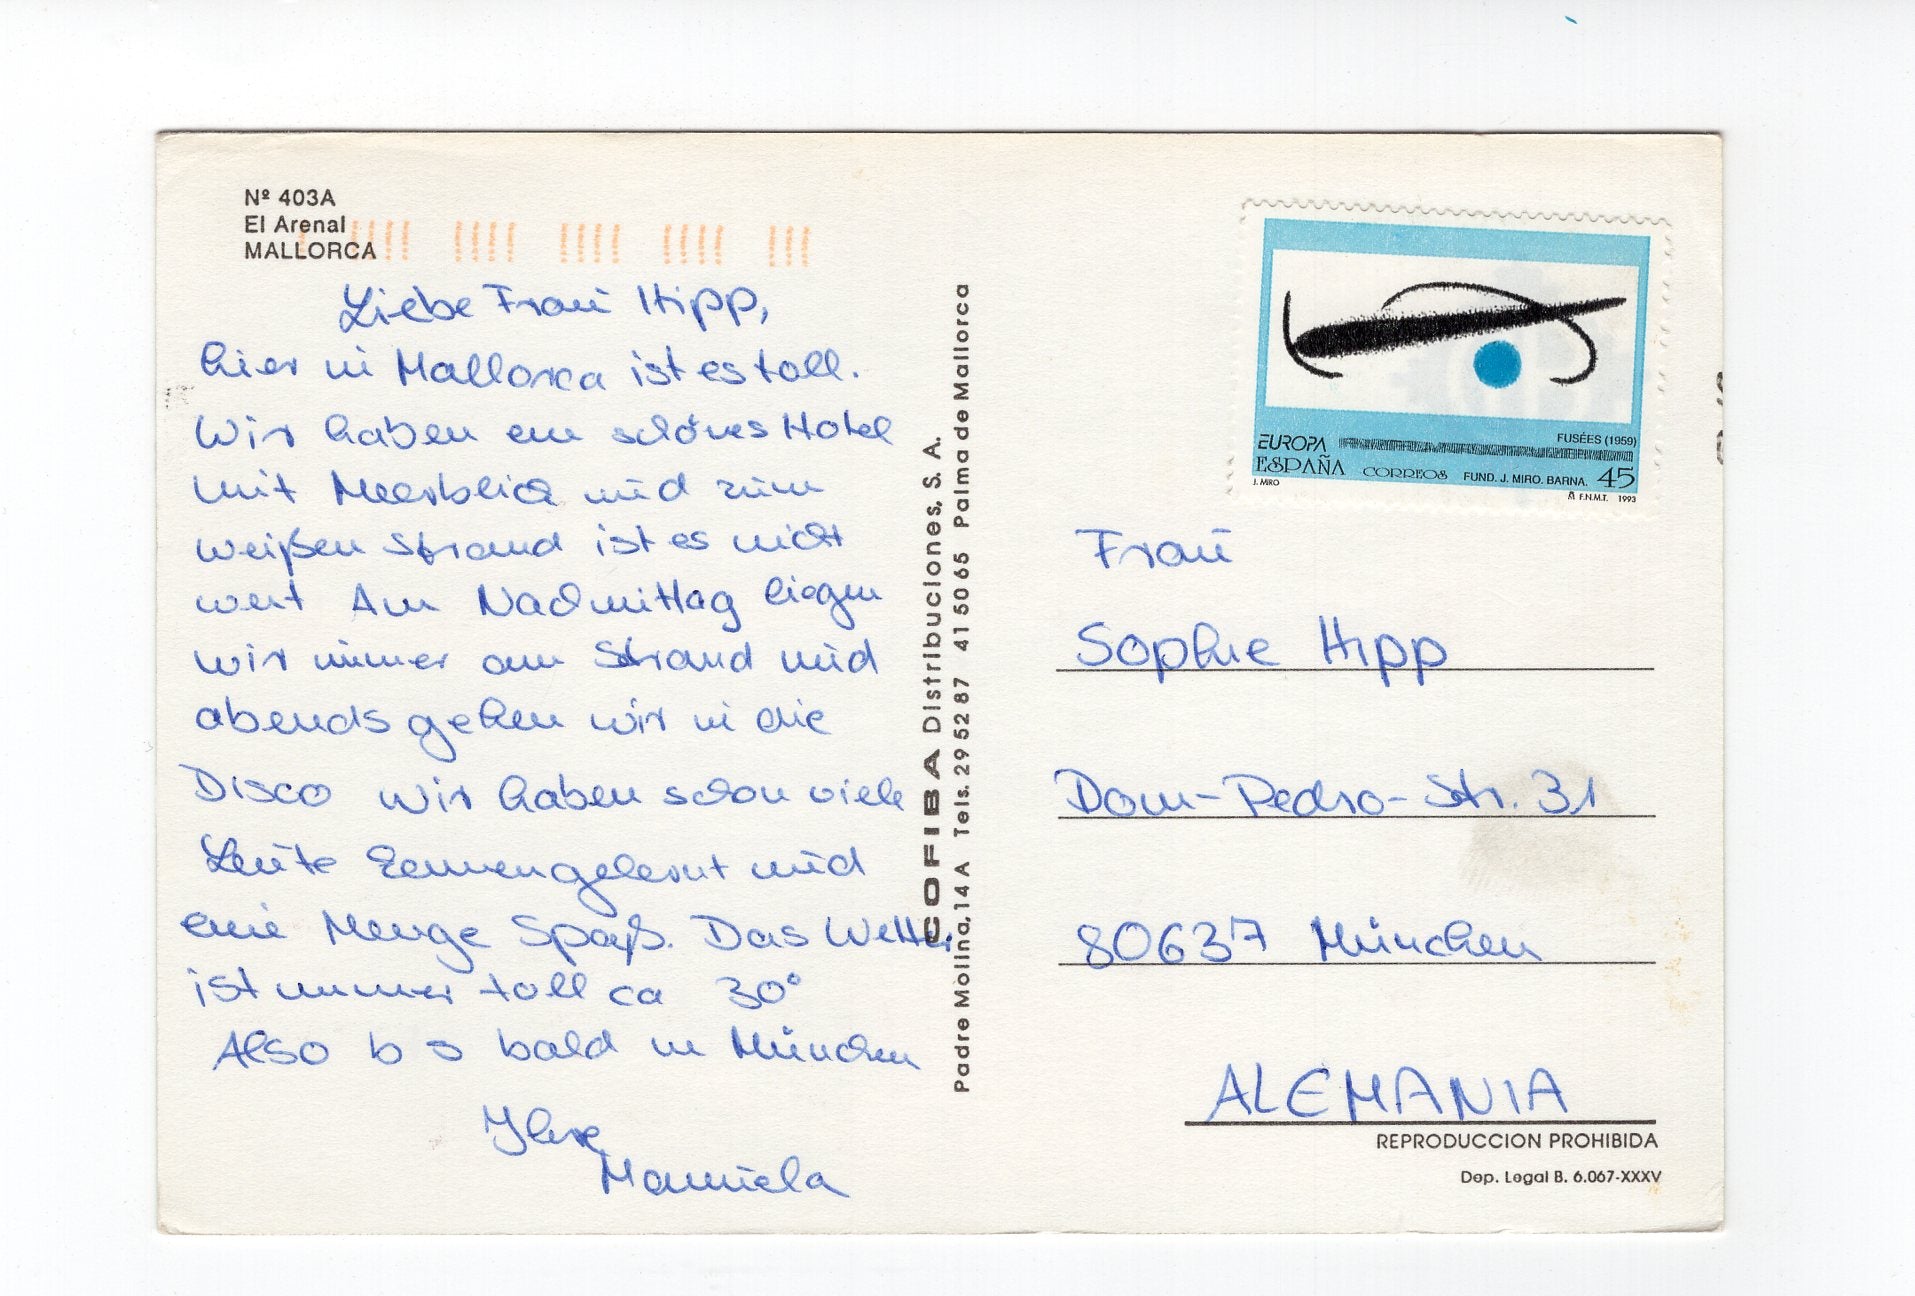 Nº 403A
El Arenal
MALLORCA
Liebe Frau Hipp,
hier in Mallorca ist es toll.
Wir haben ein schönes Hotel
mit Meerblick und zum
weißen Strand ist es nicht
weit Am Nachmittag liegen
wir immer am Strand und
abends gehen wir in die
Disco Wir haben schon viele
Leute kennengelernt und
eine Menge Spaß. Das Wetter
ist immer toll ca 30°
Also bis bald in München
Ihre
Manuela
COFIBA Distribuciones, S. A.
Padre Molina, 14 A Tels. 29 52 87 41 50 65 Palma de Mallorca
EUROPA
FUSÉES (1959)
ESPAÑA CORREOS FUND. J. MIRO. BARNA. 45
J. MIRO F.N.M.T. 1993
Frau
Sophie Hipp
Dom-Pedro-Str. 31
80637 München
ALEMANIA
REPRODUCCION PROHIBIDA
Dep. Legal B. 6.067-XXXV